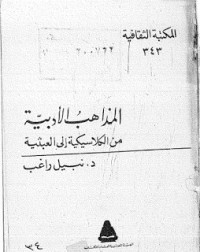 المكتبة الثقافية
٣٤٣
المذاهب الأدبية
من الكلاسيكية إلى العبثية
د. نبيل راغب